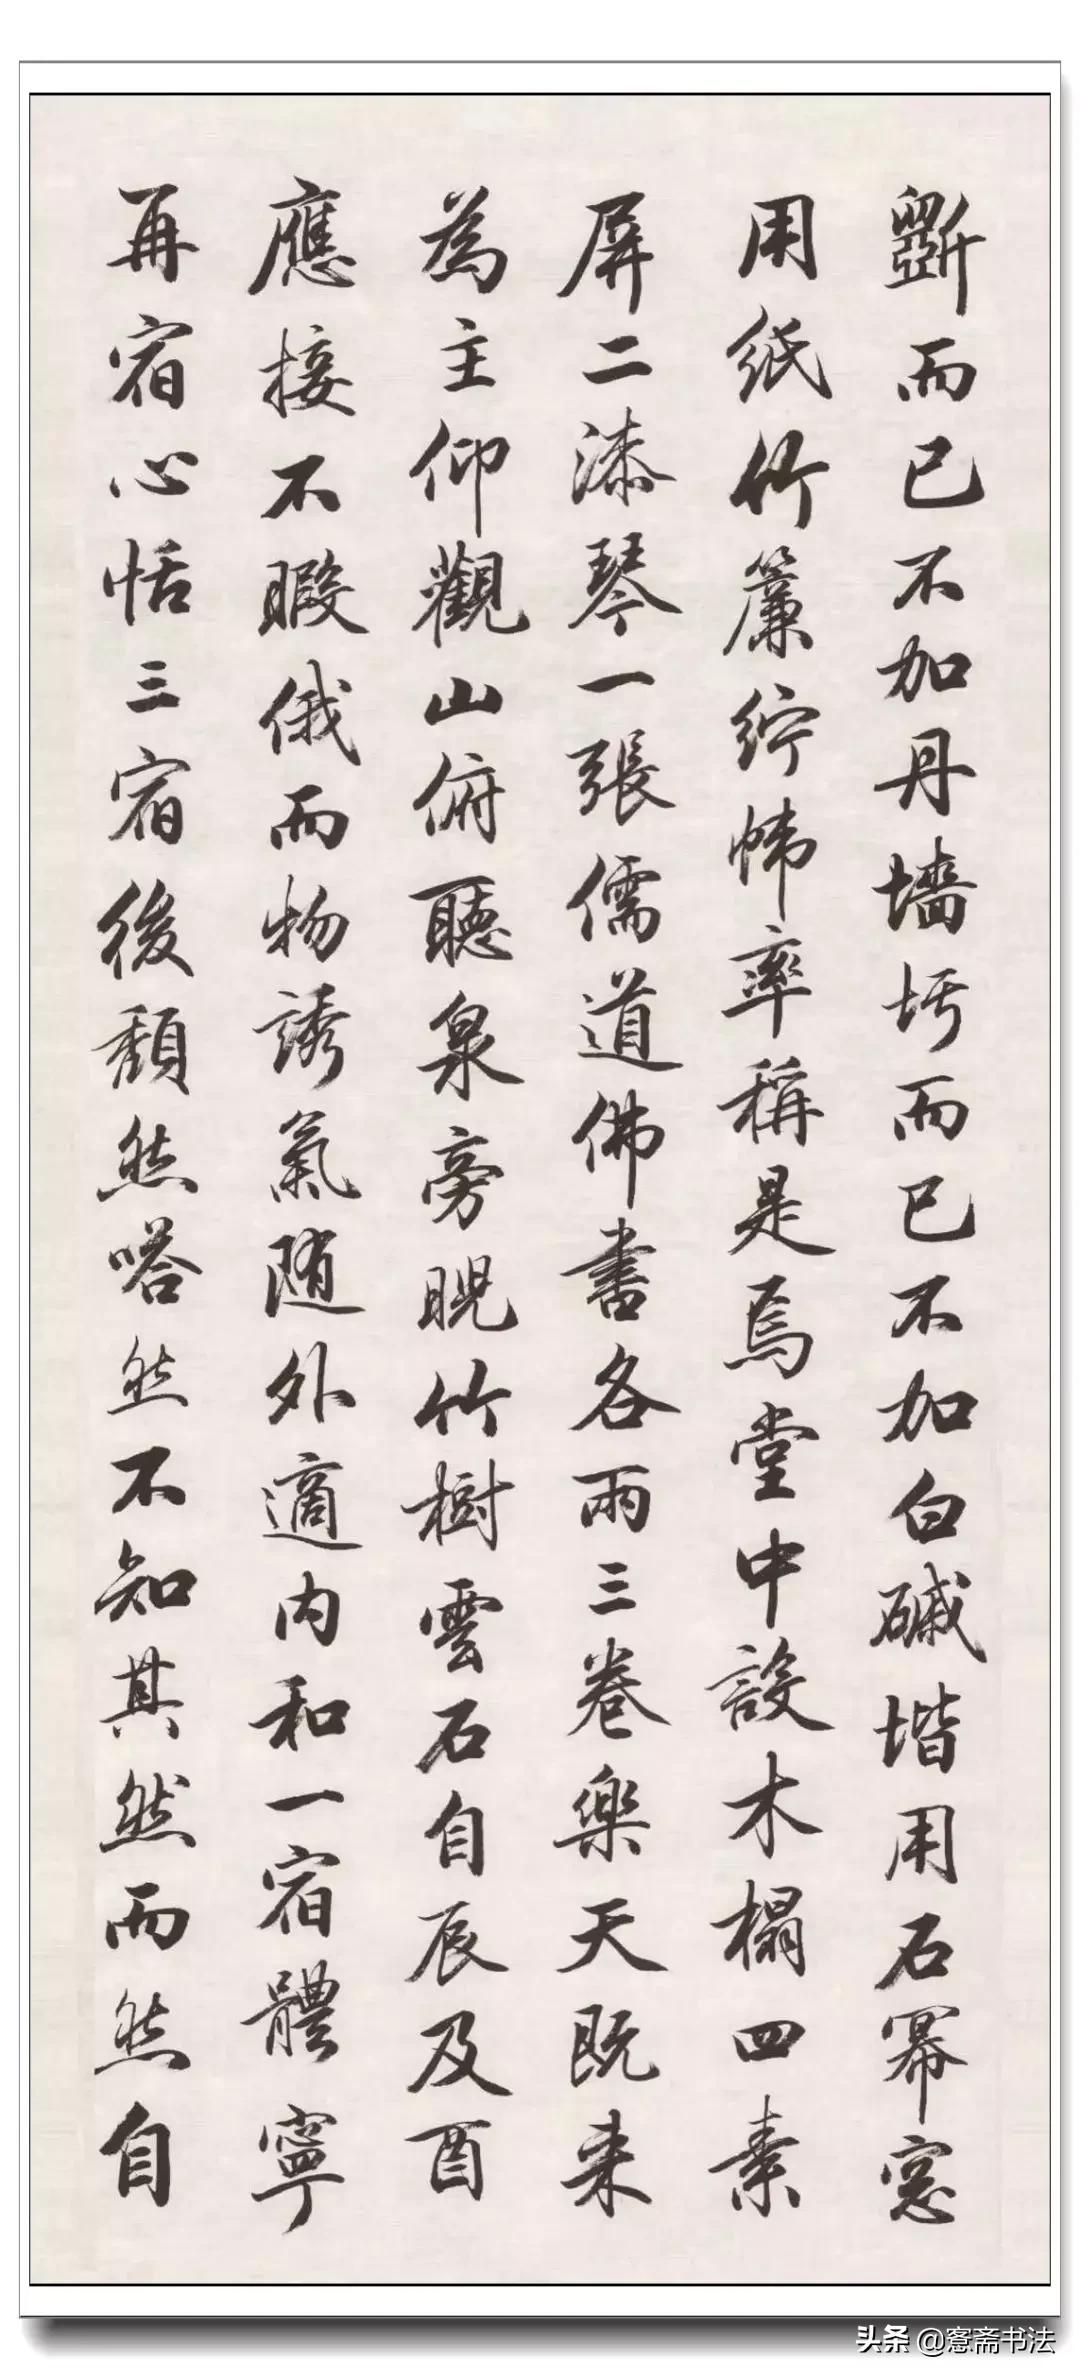 斲而已不加丹墻圬而已不加白磩堦用石冪窓
用紙竹簾紵幃率稱是焉堂中設木榻四素
屏二漆琴一張儒道佛書各兩三卷樂天既来
為主仰觀山俯聽泉旁睨竹樹雲石自辰及酉
應接不暇俄而物誘氣随外適内和一宿體寧
再宿心恬三宿後頹然嗒然不知其然而然自
头条 @愙斋书法